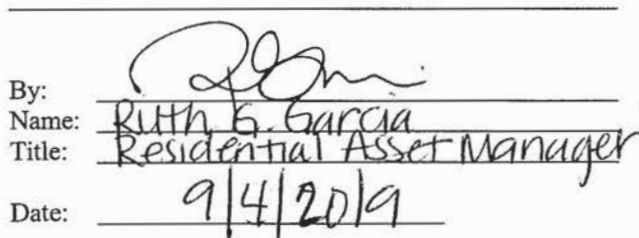 By:
Name: Ruth G. Garcia
Title: Residential Asset Manager
Date: 9/4/2019